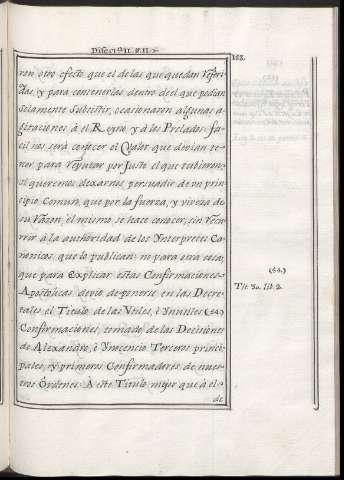 Discurso II. §. II.
188.
ron otro efecto que el de las que quedan referi-
das, y para contenerlas dentro de el que podian
Solamente Subsistir, ocasionaron algunas a-
gitaciones à el Reyno, y à los Prelados: fa-
cil nos serà conocer el Valor que devian te-
ner, para reputar por Justo el que tubieron;
si queremos dexarnos persuadir de un prin-
cipio Comun, que por la fuerza, y viveza de
su Razon, el mismo se hace conocer, sin recu-
rrir à la authoridad de los Interpretes Ca-
nonicos, que lo publican: no para otra cosa,
que para Explicar estas Confirmaciones
Apostolicas, deviò de ponerse, en las Decre-
tales el Titulo de las Utiles, è Ynutiles (54.)
Confirmaciones, tomado de las Decisiones
de Alexandro, è Ynocencio Terceros princi-
pales, y primeros Confirmadores de nues-
tros Ordenes: À este Titulo mejor que à el
de
(54.)
Tit. 30. lib. 2.